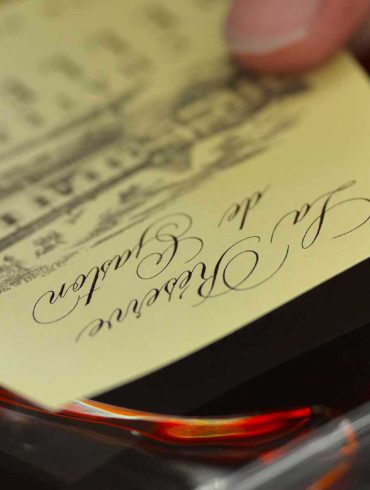 La Réserve
de Gaston